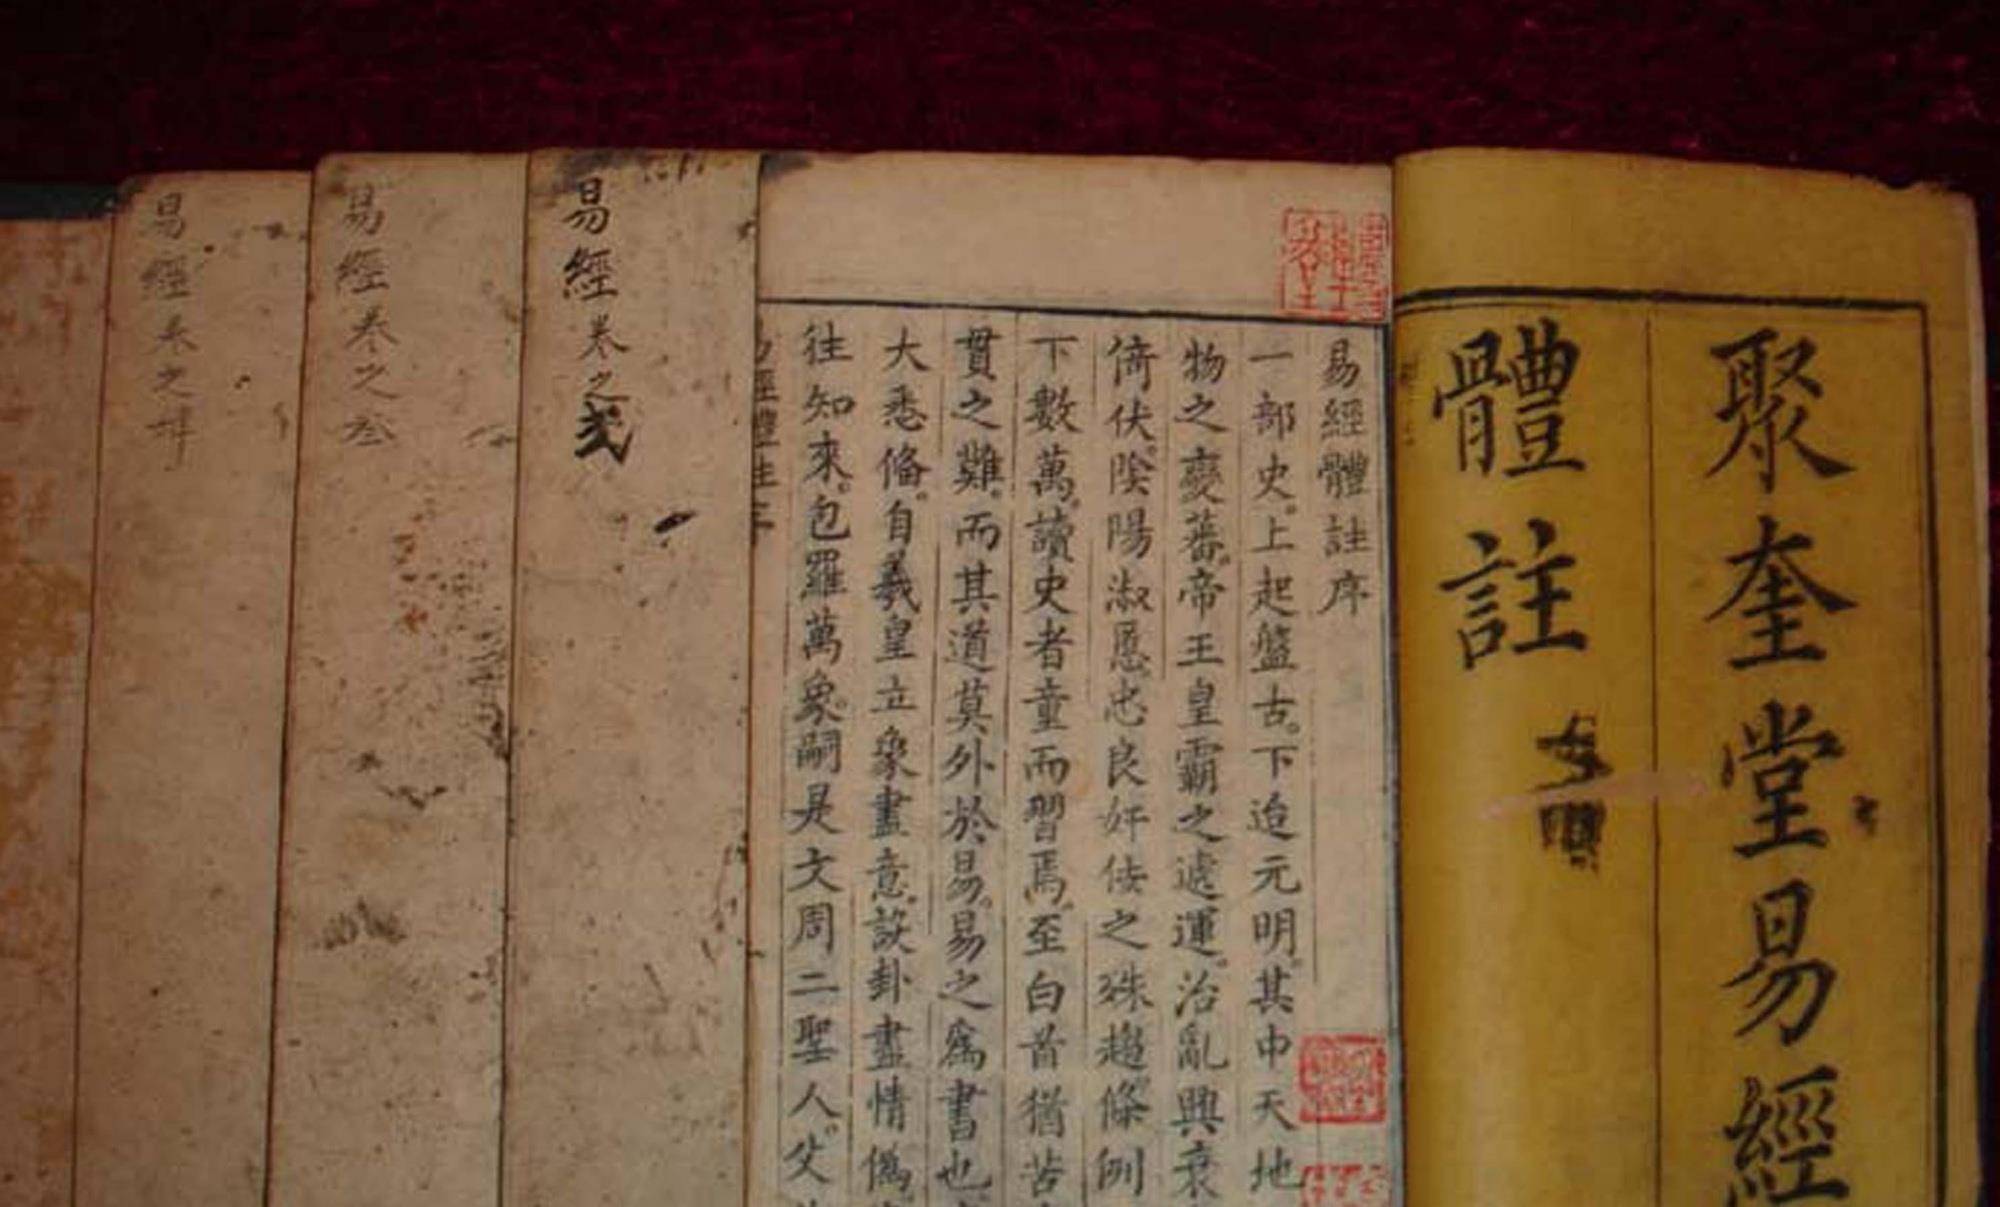 聚奎堂易經
體註
易經體註序
一部史。上起盤古。下迨元明。其中天地
物之變蕃。帝王皇霸之遞運。治亂興衰
倚伏。陰陽淑慝忠良奸佞之殊趨。條例
下數萬。讀史者童而習焉。至白首猶苦
貫之難。而其道莫外於易。易之為書也
大悉偹。自羲皇立象盡意。設卦盡情僞
往知來。包羅萬象。嗣是文周二聖人。父
易經卷之弍
易經卷之叁
易經卷之